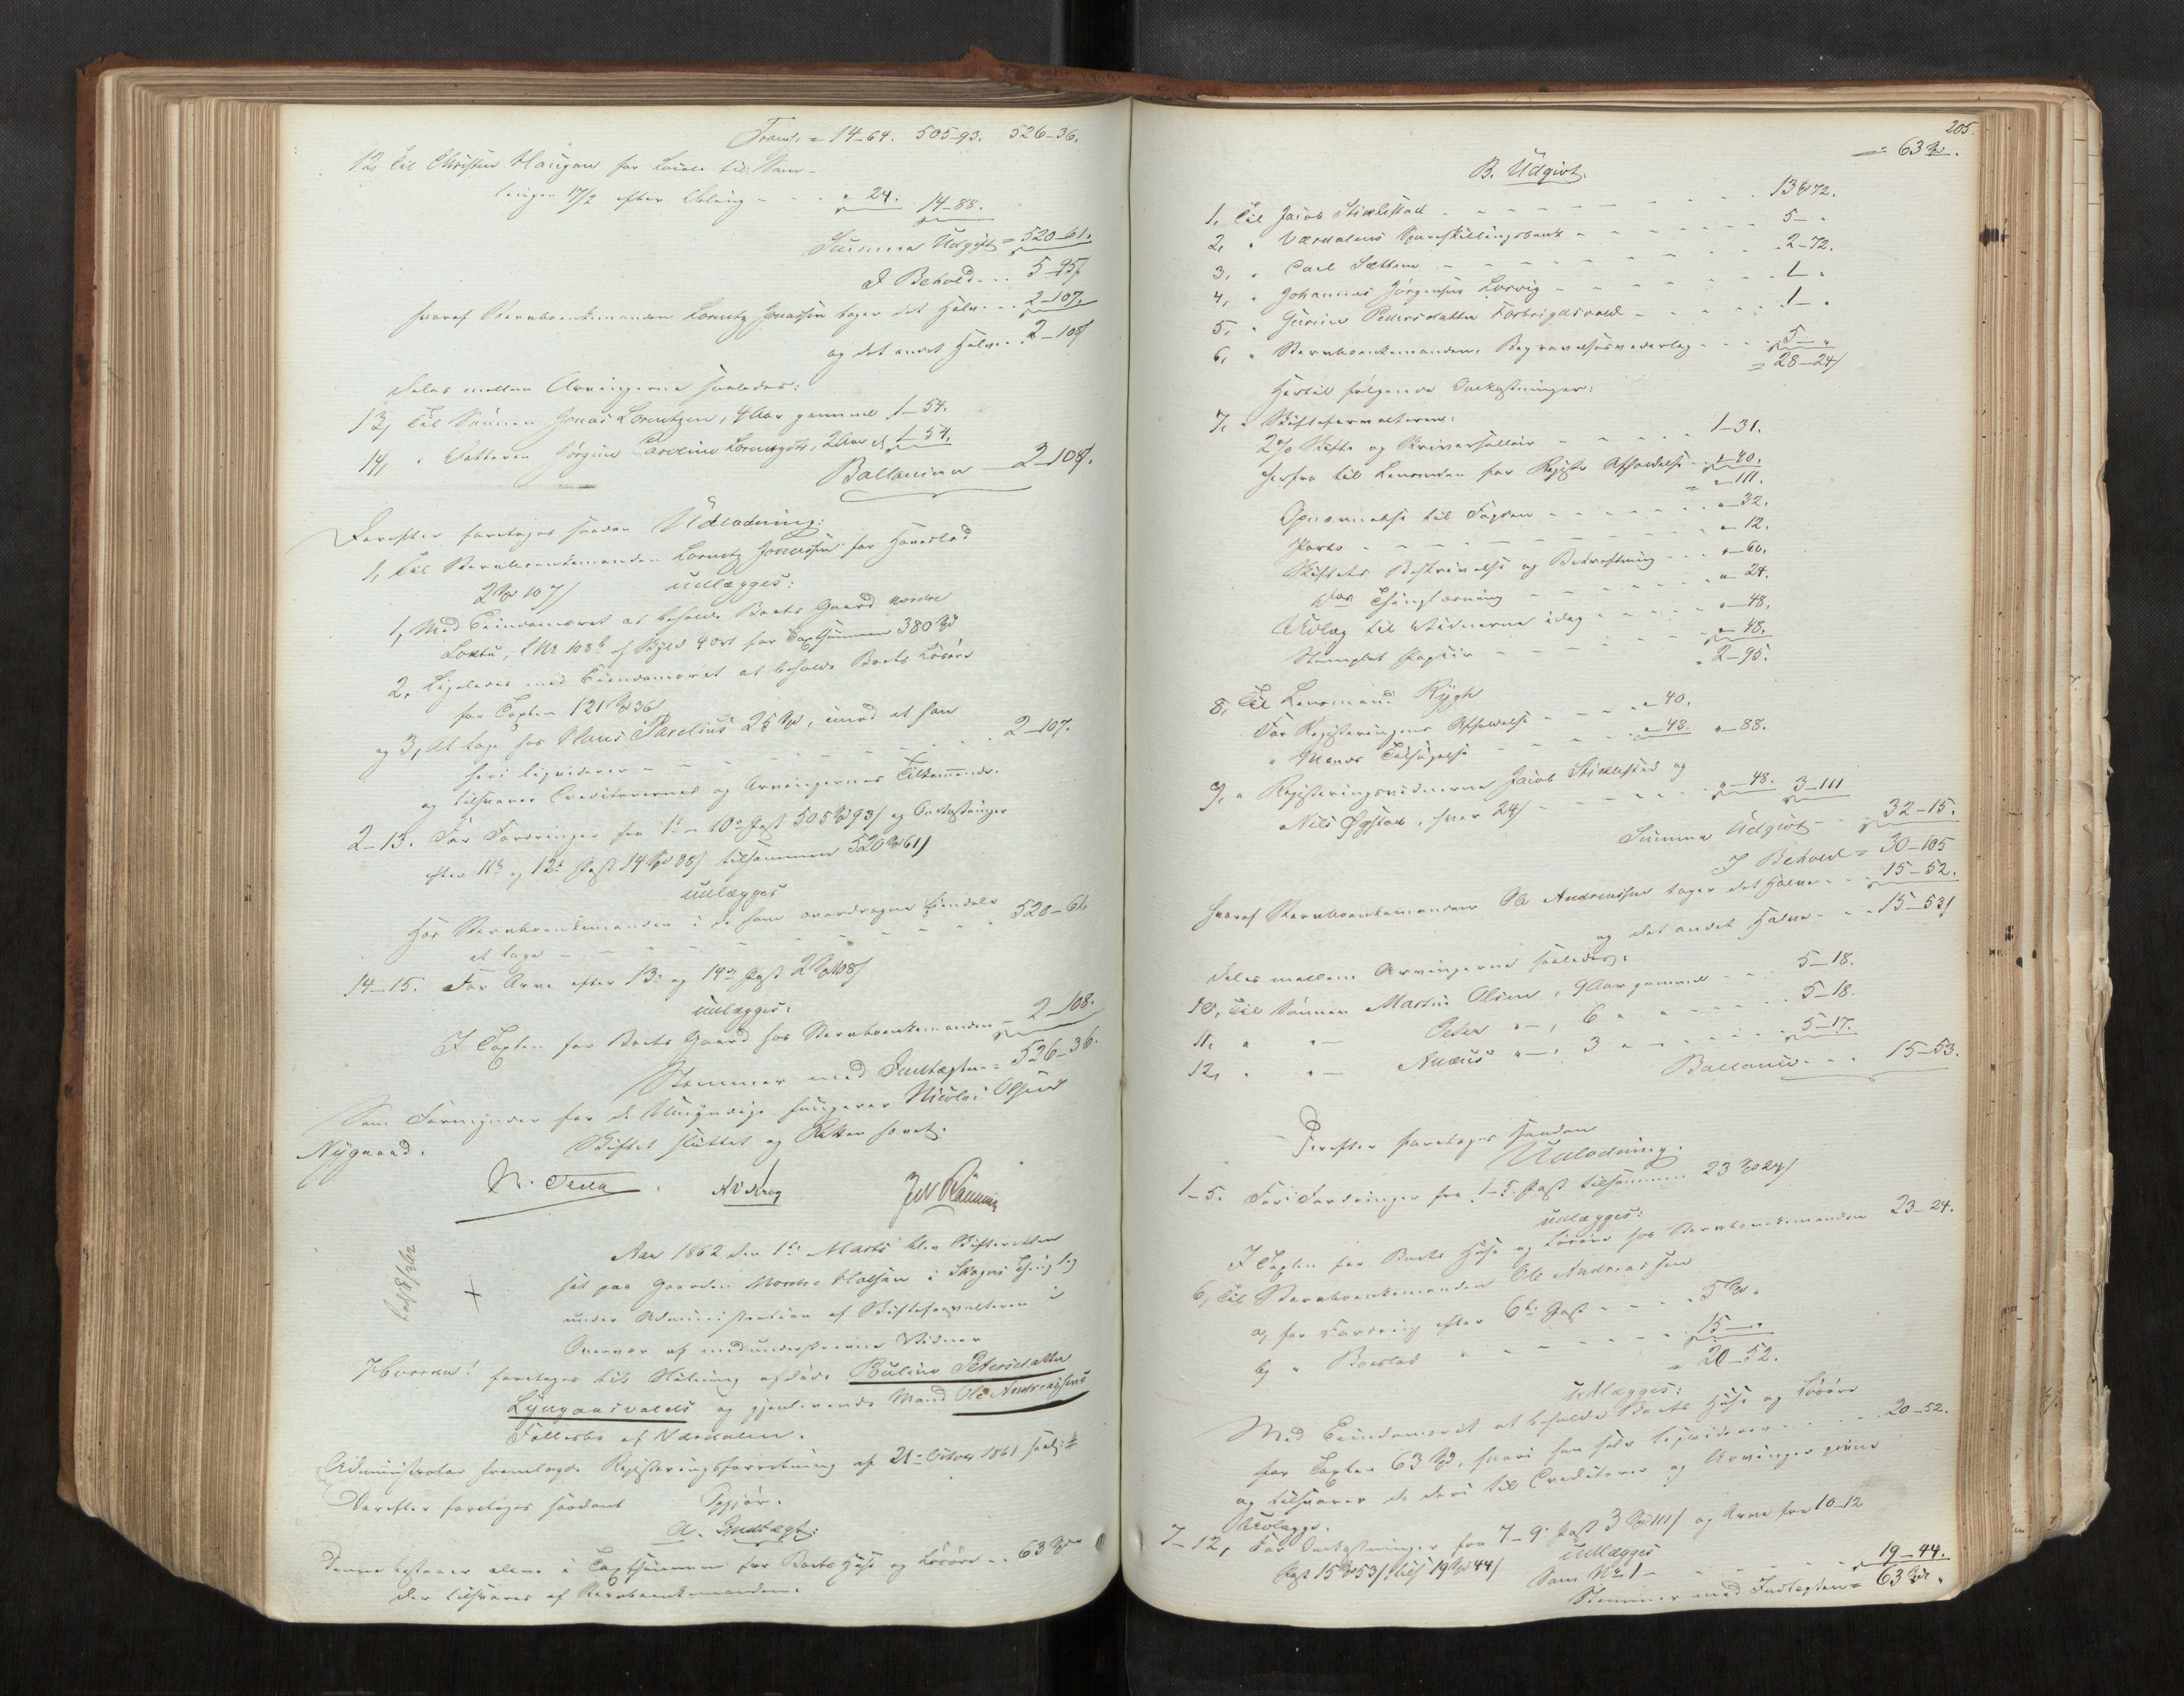 Transp. = 14-64. 505-93. 526-36.
12, Til Christen Haugan for Locale til Sam-
lingen 17/2 efter
" 24. 14-88.
Summa Udgift = 520-61.
I Behold - - 5-95/
hvoraf Stervboenkemanden Lorentz Jonassen tager det Halve - - 2-107.
og det andet Halve - - 2-108/
deles mellem Arvingerne saaledes:
13, Til Sønnen Jonas Lorentzen, 4 Aar gammel 1-54.
14, " Datteren Jørgine Caroline Lorentzdtr, 2 Aar gl 1-54.
Ballancerer - 2-108/.
Derefter foretages saadan Udlodning:
1, Til Stervboenkemanden Lorentz Jonassen for Hovedlod
2 Spd 107/ udlægges:
1, Med Eiendomsret at beholde Boets Gaard nordre
Loxtu, LNr 108b af Skyld 4 ort for Taxtsummen 380 Spd
2, Ligeledes med Eiendomsret at beholde Boets Løsøre
for Taxten 121 Spd 36/
og 3, At tage hos Hans Parelius 25 Spd, imod at han
heri liqviderer - - - - - 2-107.
og tilsvarer Creditorernes og Arvingernes Tilkommende.
2-13. For Fordringer fra 1ste - 10de Post 505 Spd 93/ og Omkostninger
efter 11te og 12te Post 14 Spd 88/ tilsammen 520 Spd 61/
udlægges
hos Stervboenkemanden i de ham overdragne Eiendele
at tage - - - - - 520-61.
14-15. For Arv efter 13de og 14de Post 2 Spd 108/
udlægges:
I Taxten for Boets Gaard hos Stervboenkemanden - 2-108.
Stemmer med Indtægten = 526-36.
Som Formynder for de Umyndige fungerer Nicolai Olsen
Nygaard. Skiftet sluttet og Retten hævet.
Aar 1862 den 1ste Marts blev Skifteretten
sat paa Gaarden Nordre Halsan i Skogns Thinglag
under Administration af Skifteforvalteren i
Overvær af medunderskrevne Vidner
Hvorda! foretages til Slutning afdøde Pauline Petersdatter
Lyngaasvalds og gjenlevende Mand Ole Andreassens
Fællesbo af Værdalen.
Administrator fremlagde Registreringsforretning af 21de October 1861
Derefter foretages saadant Opgjør.
A. Indtægt:
Denne bestaar alene i Taxtsummen for Boets Huse og Løsøre - - 63 Spd "
der tilsvares af Stervboenkemanden.
205.
= 63 Spd.
B. Udgivt.
1, Til Jacob Stiklestad - - - - 13 Spd 72.
2, " Værdalens Spareskillingsbank - - - - 5- "
3, " Carl Sætten - - - - 2-72.
4, " Johannes Jørgensen Lorvig - - - - 1- "
5, " Gurine Pedersdatter Forbrigdsvald - - - - 1- "
6, " Stervboenkemanden, Begravelsesvederlag - - - 5- "
= 28-24/
Hertil følgende Omkostninger:
7, " Skifteforvalteren:
2 % Skifte og Skriversallair - - - - 1-31.
herfra til Lensmanden for Registr Afholdelse - - "-40.
= "-111.
Opnævnelse til Fogden - - - - "-32.
Porto - - - - "-12.
Skiftets Beskrivelse og Bekræftning - - - "-60.
Thinglæsning - - - - "-24.
Udlæg til Vidnerne idag - - - - "-48.
Stemplet Papiir - - - - "-48.
2-95.
8, Til Lensmand Rygh
For Registreringens Afholdelse - - - "-40.
" Mænds Tilsigelse - - - "-48. "-88.
9, " Registreringsvidnerne Jacob Stiklestad og
Nils Øgstad, hver 24/ - - - - "-48. 3-111
Summa Udgivt - - 32-15.
I Behold = 30-105
hvoraf Stervboenkemanden Ole Andreassen tager det Halve - - 15-52.
og det andet Halve - - - 15-53/
deles mellem Arvingerne saaledes:
10, Til Sønnen Martin Olsen, 9 Aar gammel - - 5-18.
11, " "- Peter "-, 6 " " - - - 5-18.
12, " "- "-, 3 " - - - - 5-17.
Ballance - - - 15-53.
Derefter foretages saadan
Udlodning:
1-5. For Fordringer fra 1-5 Post tilsammen 23 Spd 24/
udlægges:
I Taxten for Boets Huse og Løsøre hos Stervboenkemanden 23-24.
6, Til Stervboenkemanden Ole Andreassen
a, for Fordring efter 6te Post - - - - 5 Spd "
b, " Boeslod - - - - 15-
= 20-52.
udlægges:
Med Eiendomsret at beholde Boets Huse og Løsøre
for Taxten 63 Spd, hvori han selv liqviderer - - - - 20-52.
og tilsvarer de deri til Creditorer og Arvinger givne
Udlægge.
7-12, For Omkostninger fra 7-9de Post 3 Spd 111/ og Arv fra 10-12
Post 15 Spd 53/ tils 19 Spd 44/ udlægges
Som No 1 - - - - 19-44.
Stemmer med Indtægten = 63 Spd "